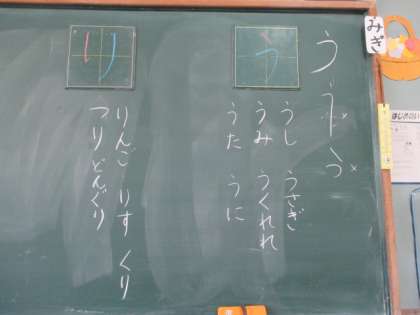 みぎ
う
う×
う×
う
うし　うさぎ
うみ　うくれれ
うた　うに
り
りんご　りす　くり
つり　どんぐり